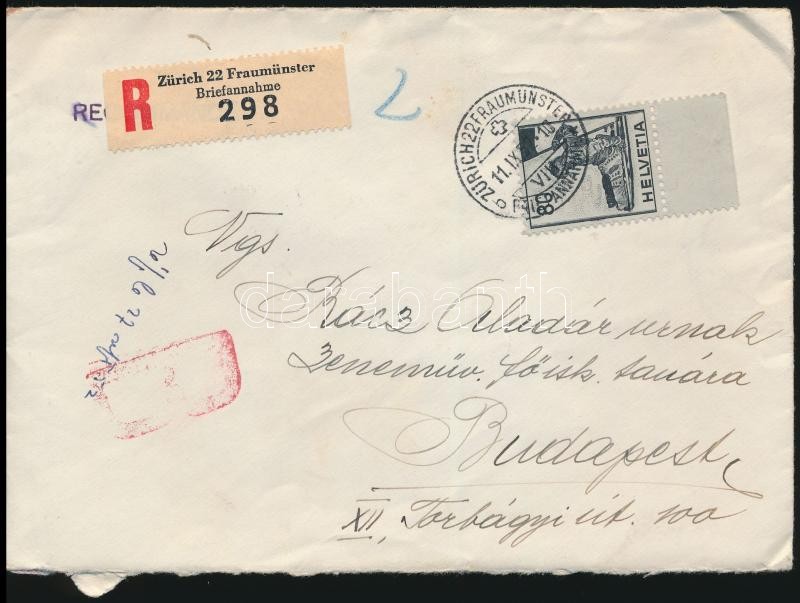 Zürich 22 Fraumünster
Briefannahme
R 298
ZÜRICH 22 FRAUMÜNSTER
11.IX
VII
80
HELVETIA
Vgs.
Kácz Aladár urnak
Zeneműv. főisk. tanára
Budapest
XII, Torbágyi út. 100
darabanth